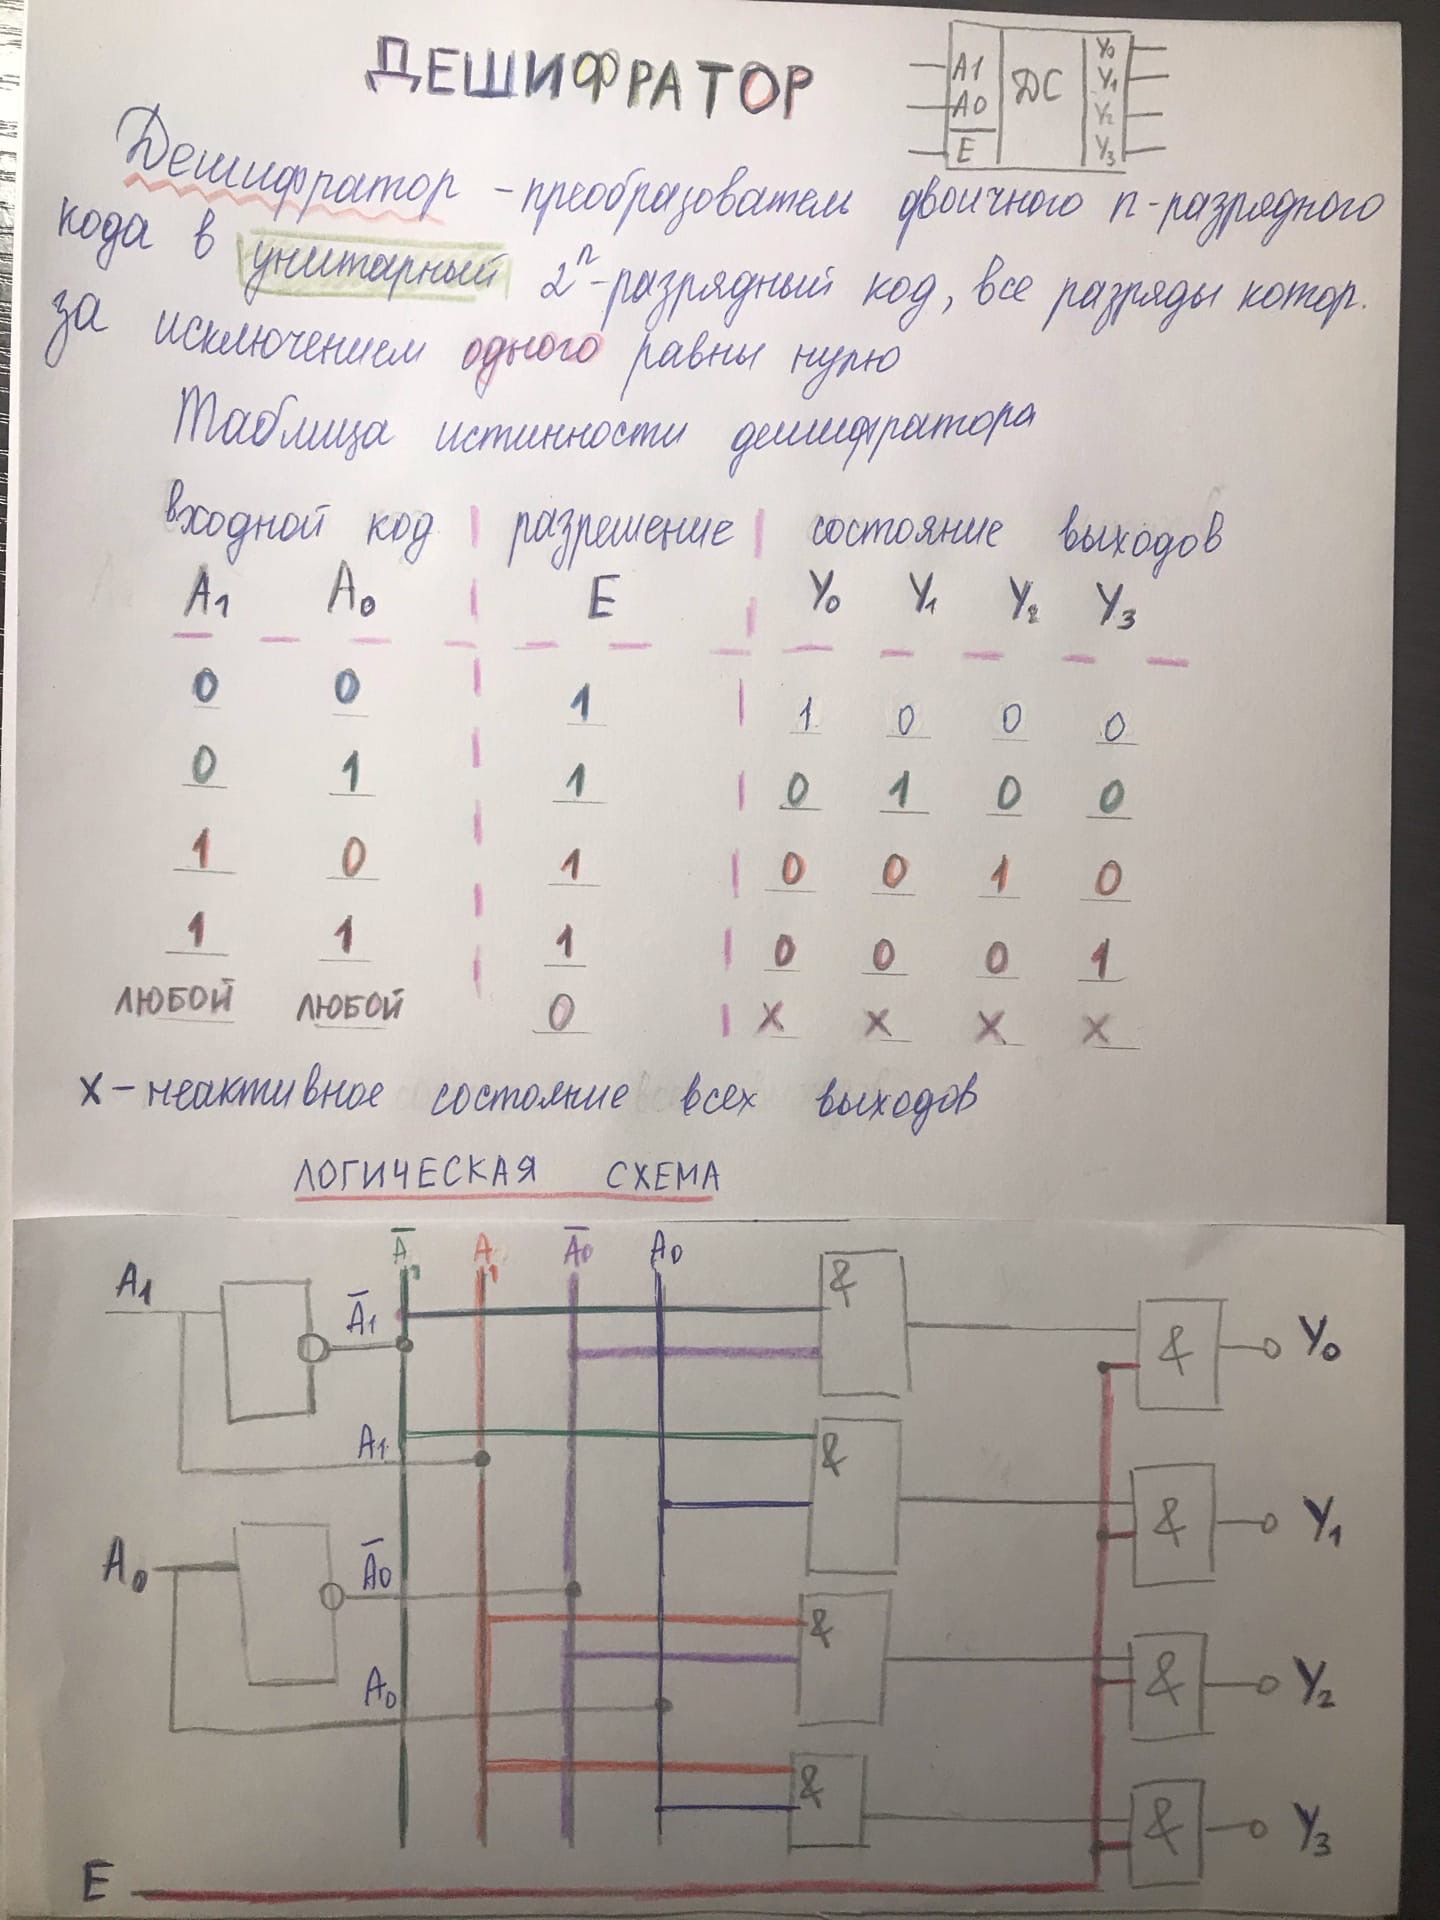 ДЕШИФРАТОР
A1 ДС Y0
A0 Y1
E Y2
Y3
Дешифратор - преобразователь двоичного n-разрядного
кода в унитарный 2ⁿ-разрядный код, все разряды котор.
за исключением одного равны нулю
Таблица истинности дешифратора
входной код разрешение состояние выходов
A₁ A₀ E Y₀ Y₁ Y₂ Y₃
0 0 1 1 0 0 0
0 1 1 0 1 0 0
1 0 1 0 0 1 0
1 1 1 0 0 0 1
ЛЮБОЙ ЛЮБОЙ 0 X X X X
X - неактивное состояние всех выходов
ЛОГИЧЕСКАЯ СХЕМА
A̅₁ A₁ A̅0 A₀
A₁ A̅1 & & Y₀
A₁ & & Y₁
A₀ A̅0 & & Y₂
A₀ & & Y₃
E